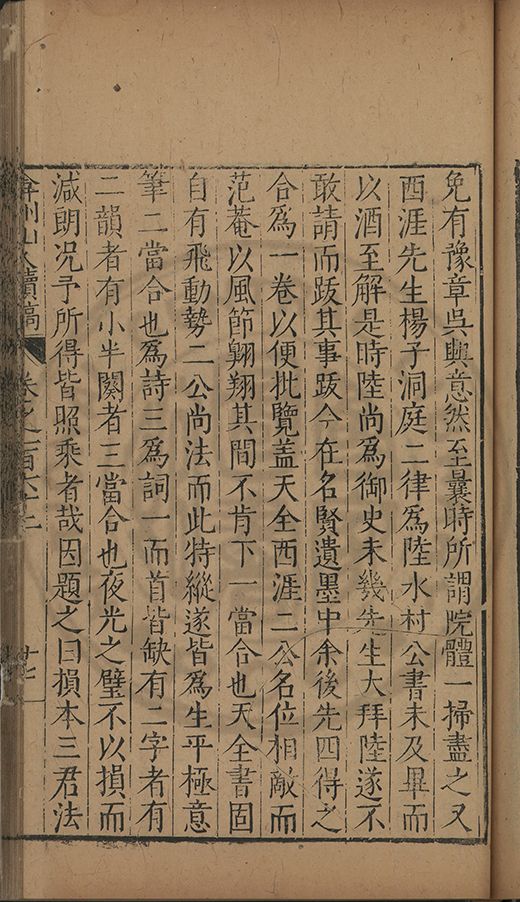 免有豫章吳興意然至曩時所謂院體一掃盡之又
西涯先生楊子洞庭二律為陸水村公書未及畢而
以酒至解是時陸尚為御史未幾先生大拜陸遂不
敢請而跋其事跋今在名賢遺墨中余後先四得之
合為一卷以便批覽蓋天全西涯二公名位相敵而
范菴以風節翱翔其間不肯下一當合也天全書固
自有飛動勢二公尚法而此特縱遂皆為生平極意
筆二當合也為詩三為詞一而首皆缺有二字者有
二韻者有小半闋者三當合也夜光之璧不以損而
減朗况予所得皆照乘者哉因題之曰損本三君法
弇州山人續稿 卷之一百六十二 廿七